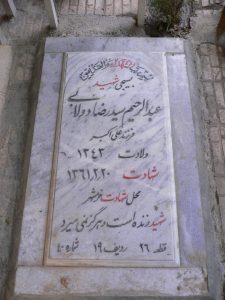 بسیجی شهید
عبدالرحیم سیدرضا دولابی
فرزند علی اکبر
ولادت ۱۳۴۳
شهادت ۱۳۶۱،۲،۲۰
محل شهادت خرمشهر
شهید زنده است و هرگز نمی میرد
قطعه ۲۶ ردیف ۱۹ شماره ۴۰